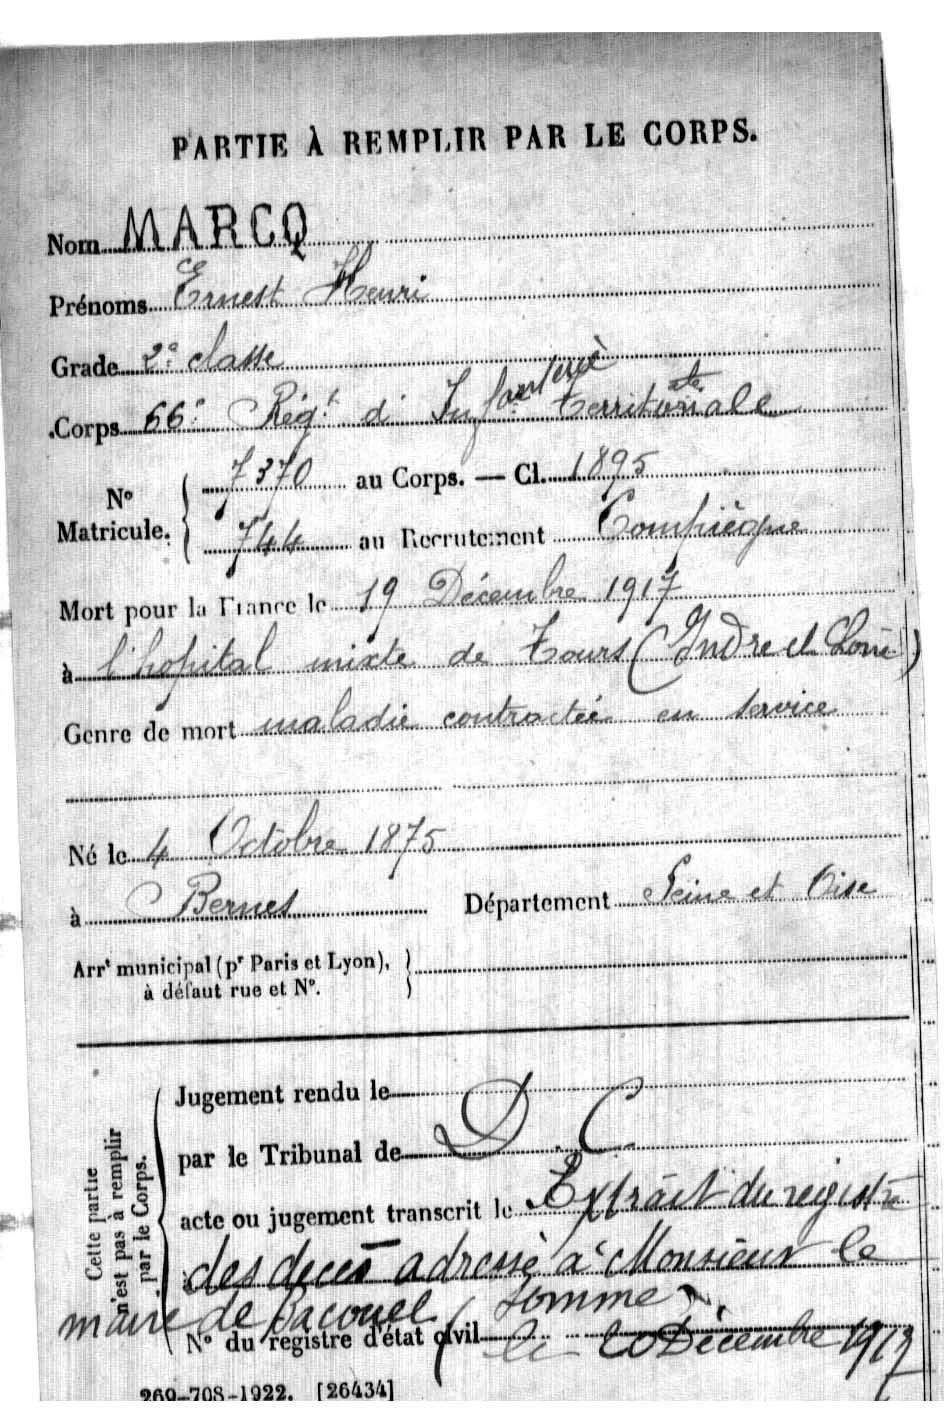 PARTIE À REMPLIR PAR LE CORPS.
Nom MARCQ
Prénoms Ernest Henri
Grade 2e classe
Corps 66e Régt d'Infanterie territoriale
N° Matricule. { 7370 au Corps. — Cl. 1895
744 au Recrutement Compiègne
Mort pour la France le 19 Décembre 1917
à l'hopital mixte de Tours (Indre et Loire)
Genre de mort maladie contractée en service
Né le 4 Octobre 1875
à Bernes Département Seine et Oise
Arrt municipal (pr Paris et Lyon), }
à défaut rue et N°.
Cette partie
n'est pas à remplir
par le Corps.
Jugement rendu le
par le Tribunal de D. C
acte ou jugement transcrit le Extrait du registre
des décès adressé à Monsieur le
maire de Bacouel (Somme).
N° du registre d'état civil le Décembre 1917
269-708-1922. [26434]